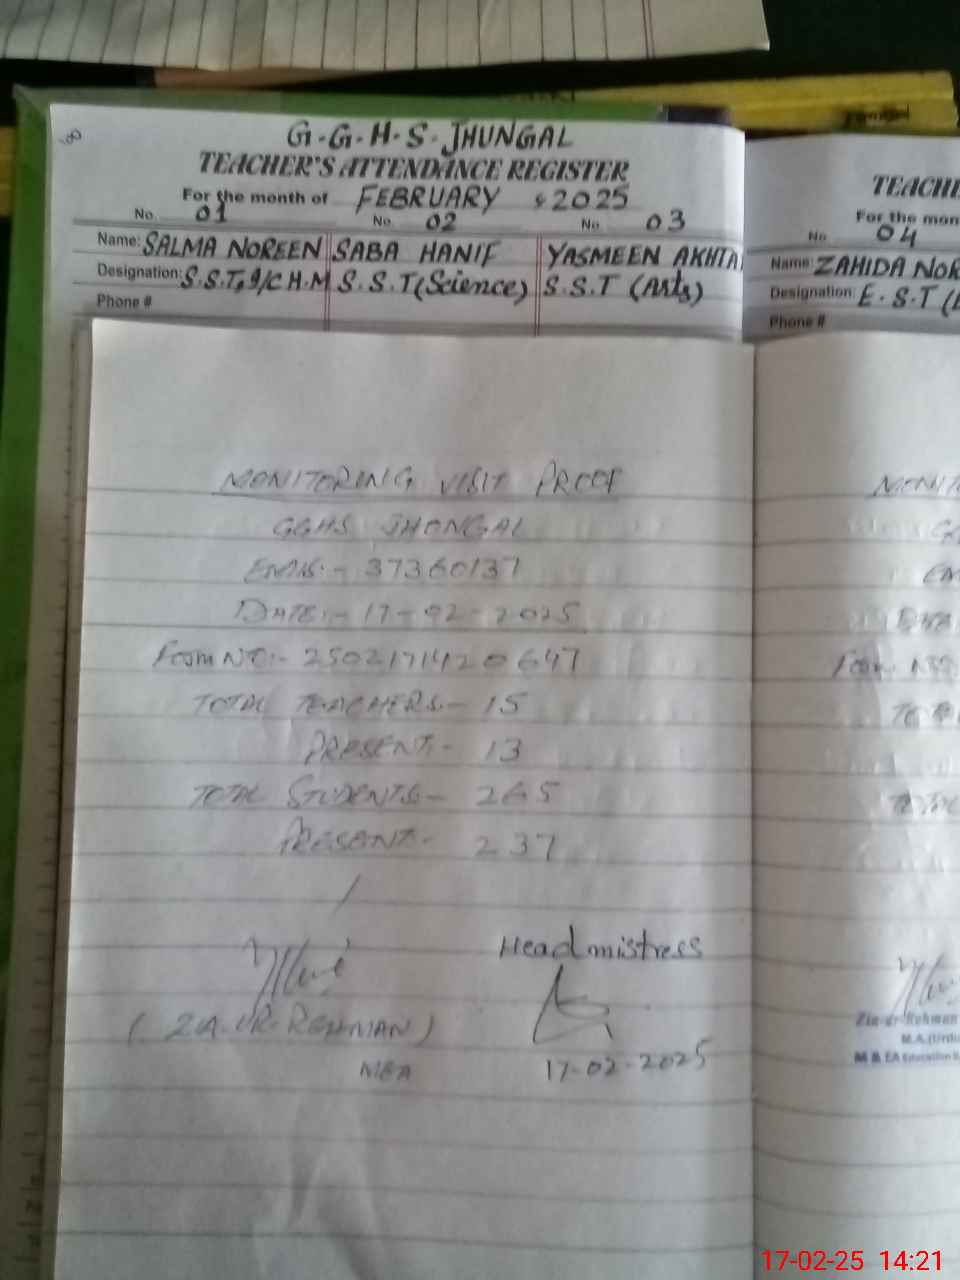 G.G.H.S. JHUNGAL
TEACHER'S ATTENDANCE REGISTER
For the month of FEBRUARY 2025
No. 01 No. 02 No. 03
Name: SALMA NOREEN SABA HANIF YASMEEN AKHTA
Designation: S.S.T, I/C H.M S.S.T (Science) S.S.T (Arts)
Phone #
TEACHE
For the mon
No 04
Name: ZAHIDA NOR
Designation: E.S.T
Phone #
MONITORING VISIT PROOF
GGHS JHONGAL
EMIS:- 37360137
DATE:- 17-02-2025
Form NO:- 2502171420647
TOTAL TEACHERS:- 15
PRESENT:- 13
TOTAL STUDENTS:- 265
PRESENT:- 237
Headmistress
(ZIA-UR-REHMAN)
MEA 17-02-2025
MONITO
TOTAL
Zia-ur-Rehman
M.A.(Urdu
M & EA Education
17-02-25 14:21